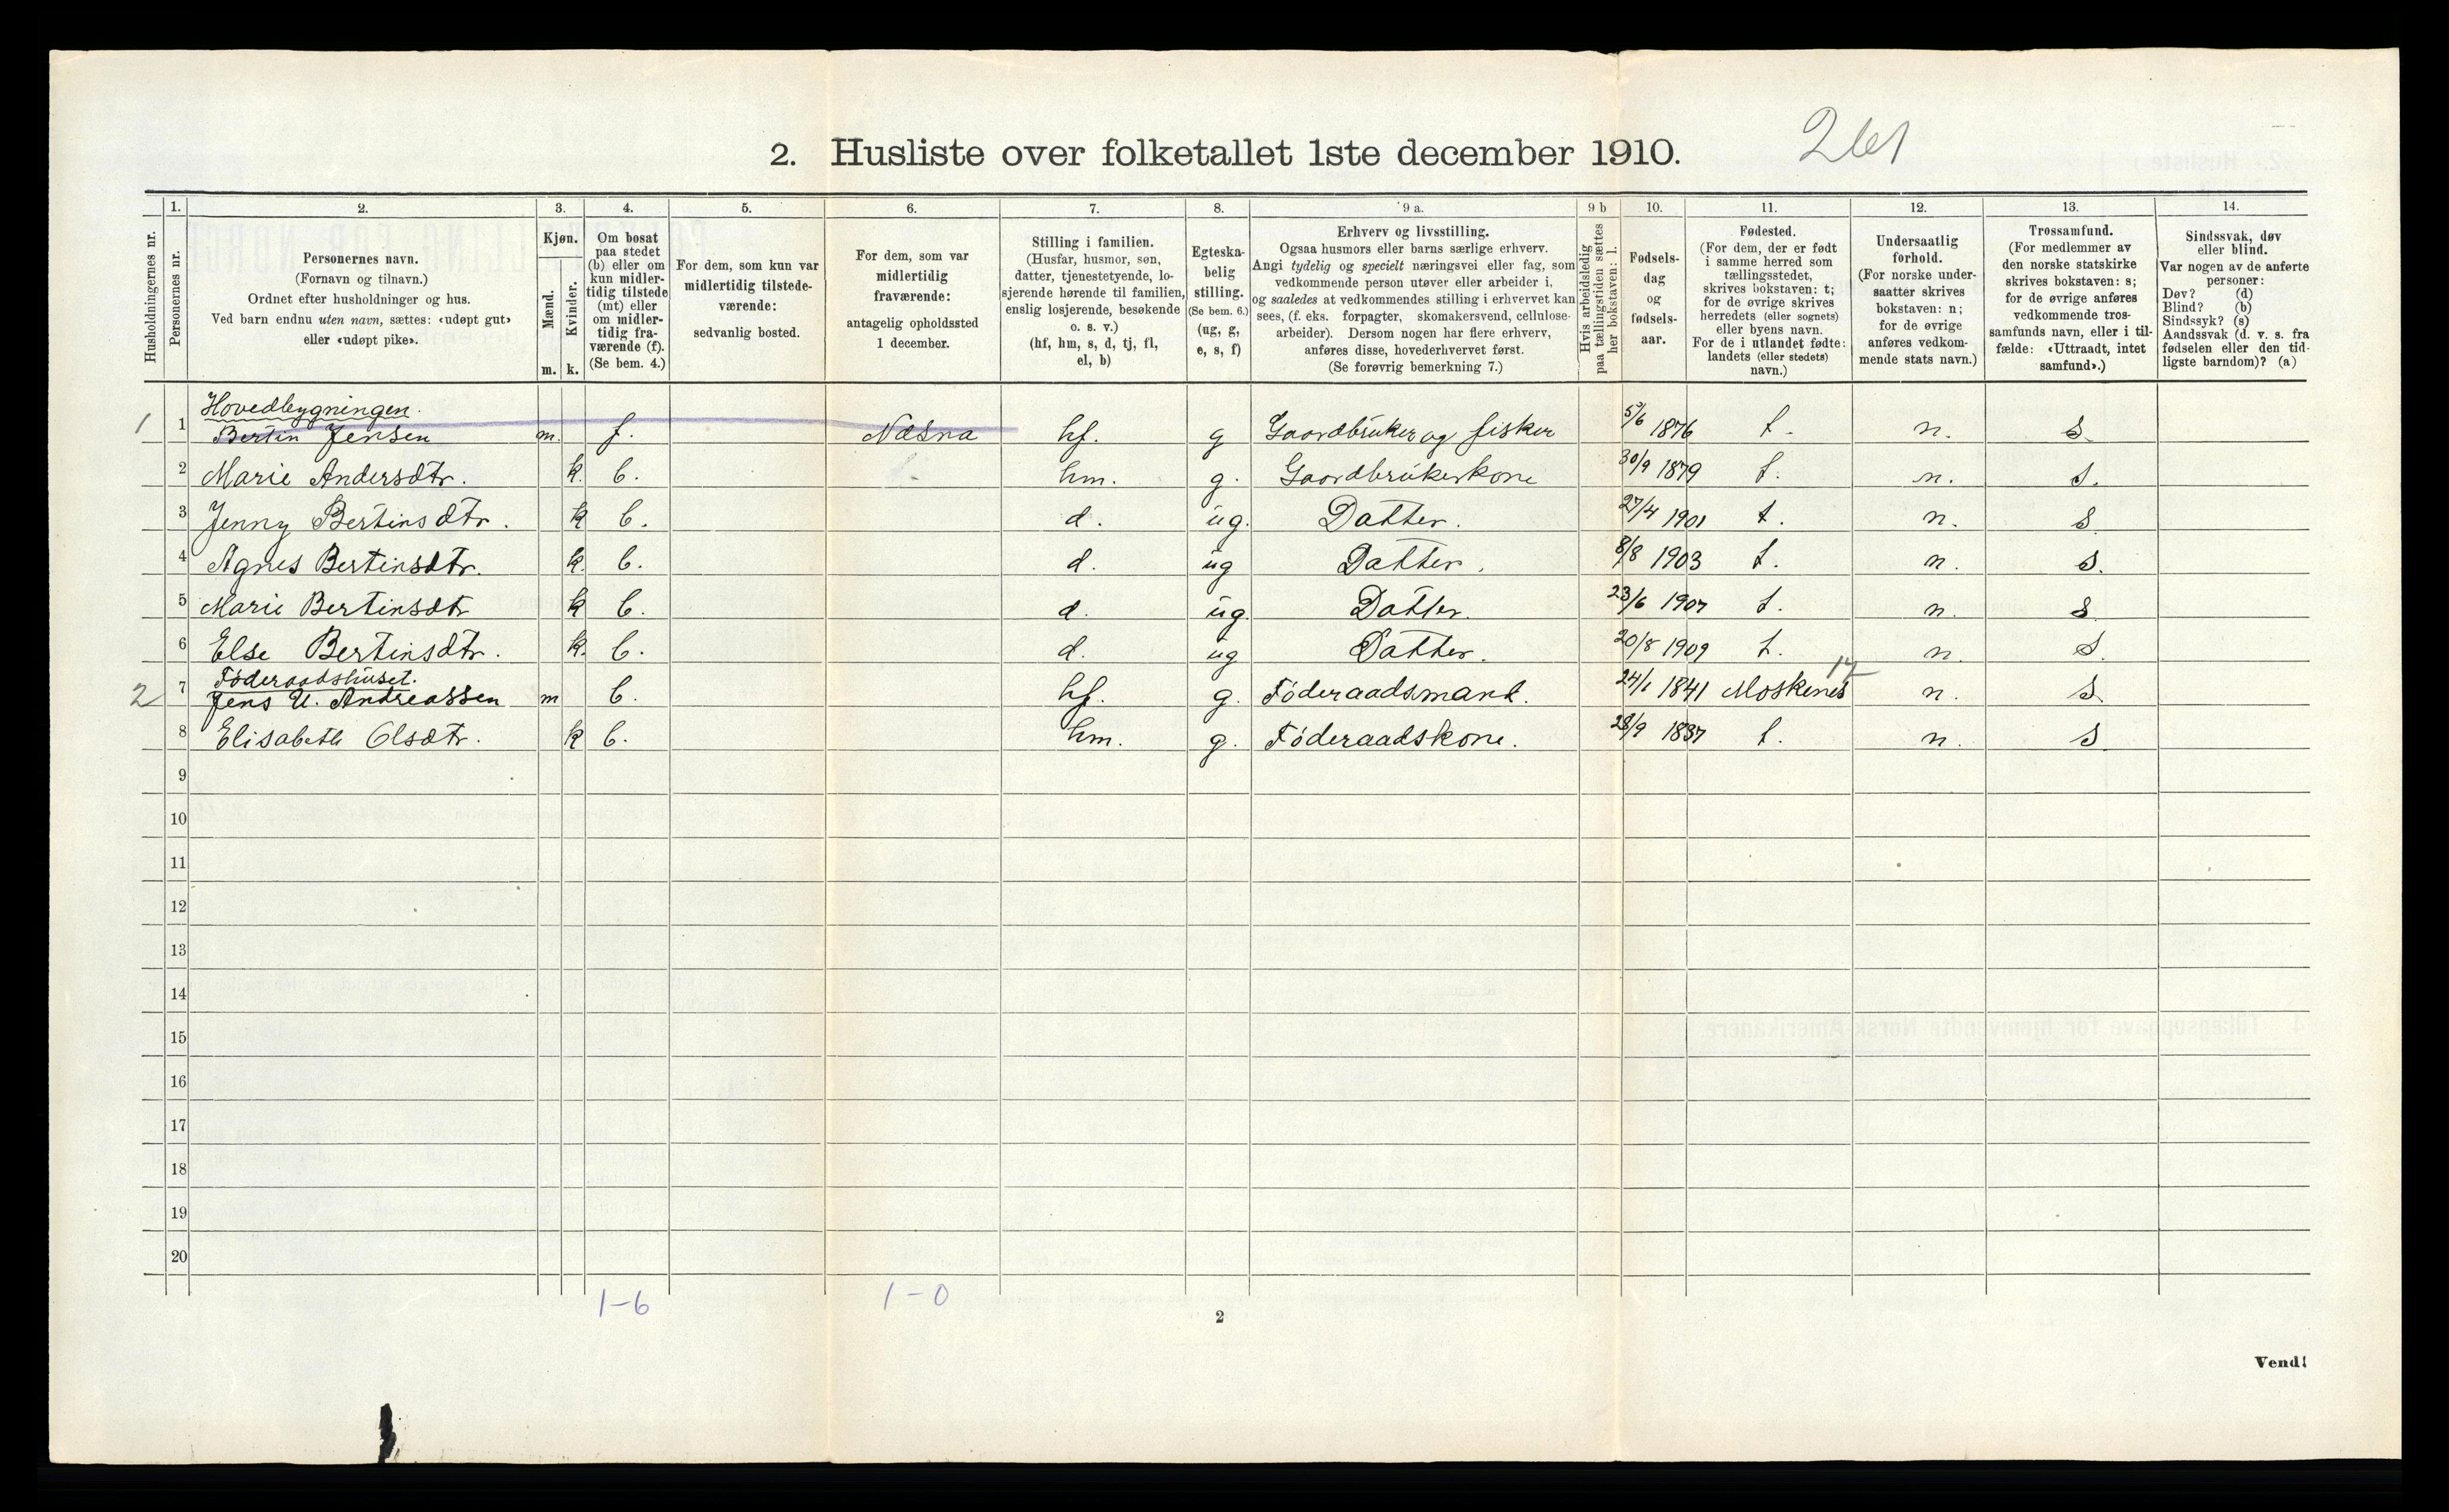 2. Husliste over folketallet 1ste december 1910. 261
Husholdningernes nr.
1. Personernes nr.
2. Personernes navn. (Fornavn og tilnavn.) Ordnet efter husholdninger og hus. Ved barn endnu uten navn, sættes: «udøpt gut» eller «udøpt pike».
3. Kjøn. Mænd. m. Kvinder. k.
4. Om bosat paa stedet (b) eller om kun midlertidig tilstede (mt) eller om midlertidig fraværende (f). (Se bem. 4.)
5. For dem, som kun var midlertidig tilstedeværende: sedvanlig bosted.
6. For dem, som var midlertidig fraværende: antagelig opholdssted 1 december.
7. Stilling i familien. (Husfar, husmor, søn, datter, tjenestetyende, losjerende hørende til familien, enslig losjerende, besøkende o. s. v.) (hf, hm, s, d, tj, fl, el, b)
8. Egteskabelig stilling. (Se bem. 6.) (ug, g, e, s, f)
9 a. Erhverv og livsstilling. Ogsaa husmors eller barns særlige erhverv. Angi tydelig og specielt næringsvei eller fag, som vedkommende person utøver eller arbeider i, og saaledes at vedkommendes stilling i erhvervet kan sees, (f. eks. forpagter, skomakersvend, cellulosearbeider). Dersom nogen har flere erhverv, anføres disse, hovederhvervet først. (Se forøvrig bemerkning 7.)
9 b Hvis arbeidsledig paa tællingstiden sættes her bokstaven: l.
10. Fødselsdag og fødselsaar.
11. Fødested. (For dem, der er født i samme herred som tællingsstedet, skrives bokstaven: t; for de øvrige skrives herredets (eller sognets) eller byens navn. For de i utlandet fødte: landets (eller stedets) navn.)
12. Undersaatlig forhold. (For norske undersaatter skrives bokstaven: n; for de øvrige anføres vedkommende stats navn.)
13. Trossamfund. (For medlemmer av den norske statskirke skrives bokstaven: s; for de øvrige anføres vedkommende trossamfunds navn, eller i tilfælde: «Uttraadt, intet samfund».)
14. Sindssvak, døv eller blind. Var nogen av de anførte personer: Døv? (d) Blind? (b) Sindssyk? (s) Aandssvak (d. v. s. fra fødselen eller den tidligste barndom)? (a)
Hovedbygningen.
1 1 Bertin Jensen m. f. Næsna hf. g Gaardbruker og fisker 5/6 1876 t. n. s
2 Marie Andersdtr. k. b. hm. g. Gaardbrukerkone 30/9 1879 t. n. s.
3 Jenny Bertinsdtr. k b. d. ug. Datter. 27/4 1901 t. n. s
4 Agnes Bertinsdtr. k. b. d. ug Datter. 8/8 1903 t. n. s.
5 Marie Bertinsdtr k b. d. ug. Datter. 23/6 1907 t. n. s
6 Else Bertinsdtr. k. b. d. ug Datter. 20/8 1909 t. n. s.
Föderaadshuset.
2 7 Jens U. Andreassen m b. hf. g. Föderaadsmand. 24/1 1841 Moskenes n. s
8 Elisabeth Olsdtr. k b. hm. g. Föderaadskone. 28/9 1837 t. n. s
9
10
11
12
13
14
15
16
17
18
19
20
1-6 1-0
2
Vend!